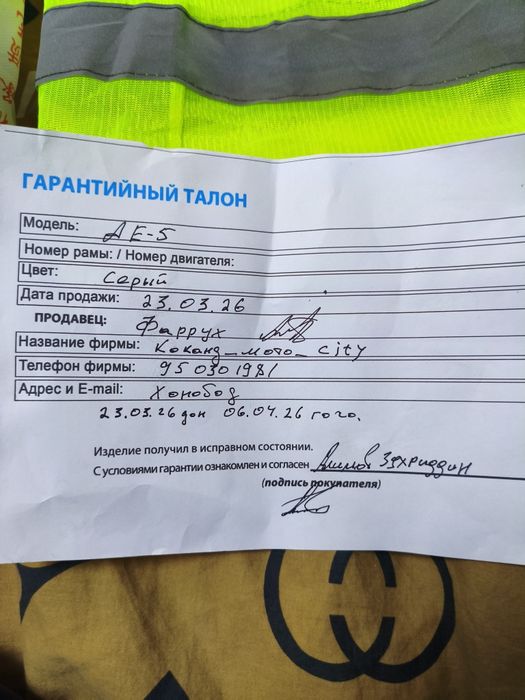 ГАРАНТИЙНЫЙ ТАЛОН
Модель: АЕ-5
Номер рамы: / Номер двигателя:
Цвет: Серый
Дата продажи: 23.03.26
ПРОДАВЕЦ: Фаррух
Название фирмы: Коканд_мото_city
Телефон фирмы: 95 030 1981
Адрес и E-mail: Хонобод
23.03.26 дан 06.04.26 гога.
Изделие получил в исправном состоянии.
С условиями гарантии ознакомлен и согласен Алимов Зухриддин
(подпись покупателя)